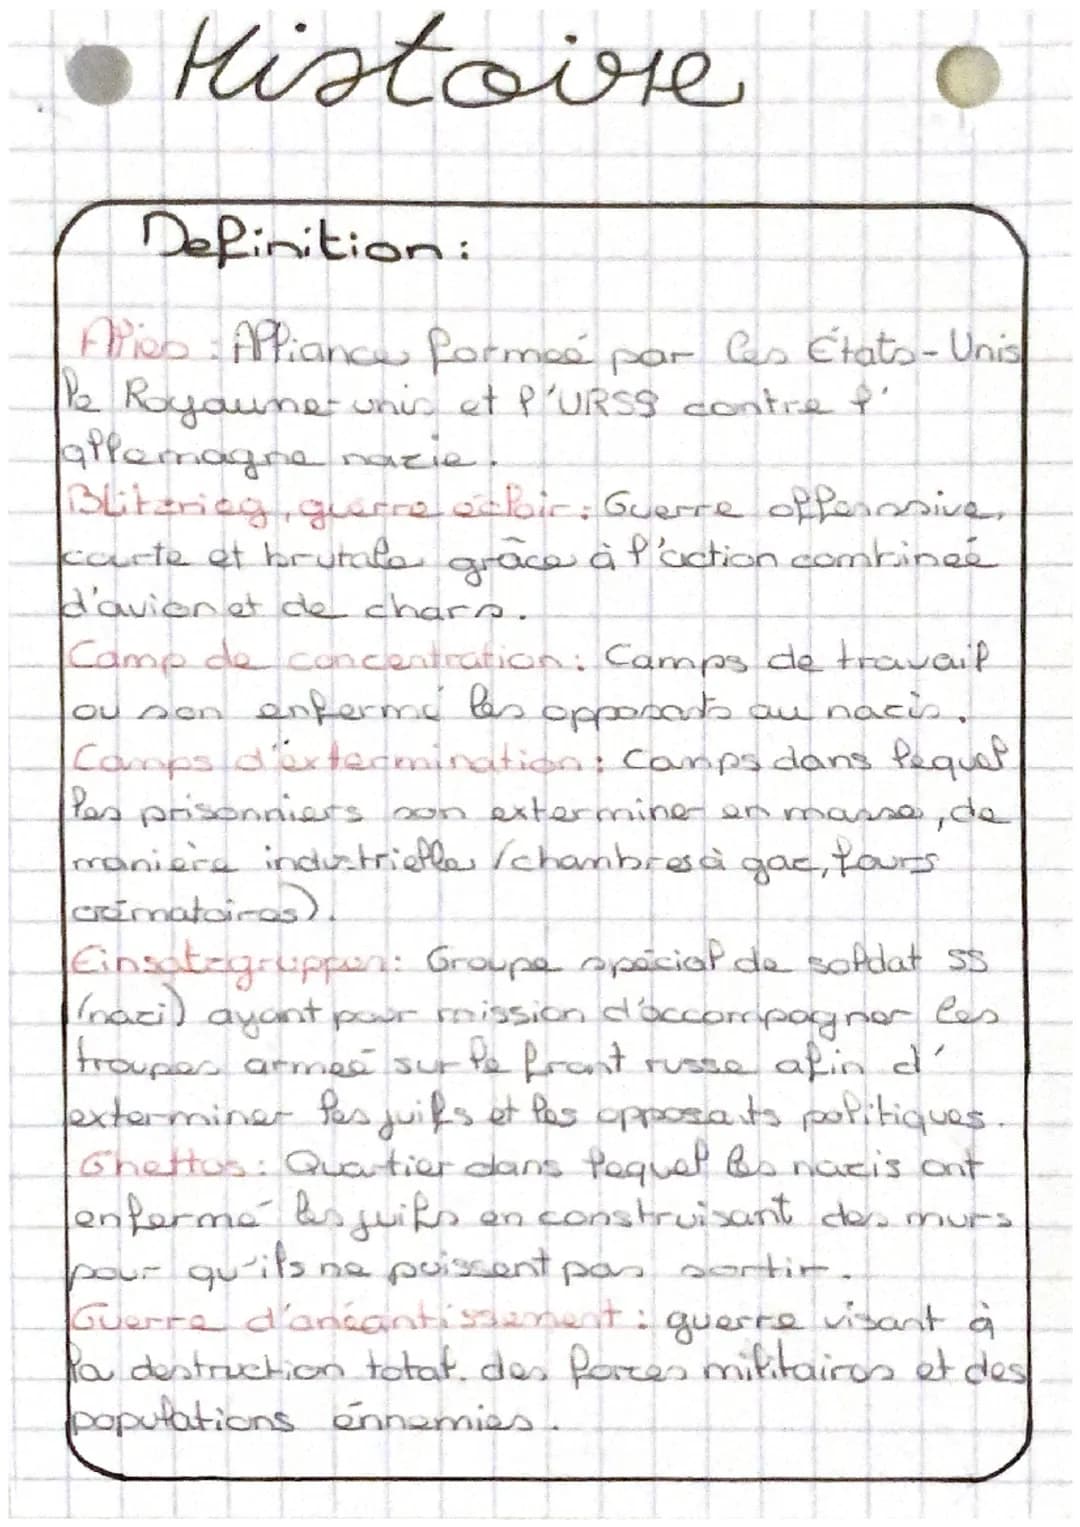 Histoire
Definition:
Alliés : Alliance formeé par les États-Unis
le Royaume-unis et l'URSS contre l'
allemagne nazie.
Blitzrieg, guerre éclair : Guerre offenssive,
courte et brutale grâce à l'action combineé
d'avion et de chars.
Camp de concentration : Camps de travail
ou son enfermé les opposants au nazis.
Camps d'extermination : Camps dans lequel
les prisonniers son exterminer en masse, de
manière industrielle (chambres à gaz, fours
crématoires).
Einsatzgruppen : Groupe spécial de soldat SS
(nazi) ayant pour mission d'accompagner les
troupes armeé sur le front russe afin d'
exterminer les juifs et les opposants politiques.
Ghettos : Quartier dans lequel les nazis ont
enfermé les juifs en construisant des murs
pour qu'ils ne puissent pas sortir.
Guerre d'anéantissement : guerre visant à
la destruction total. des forces militaires et des
populations énnemies.